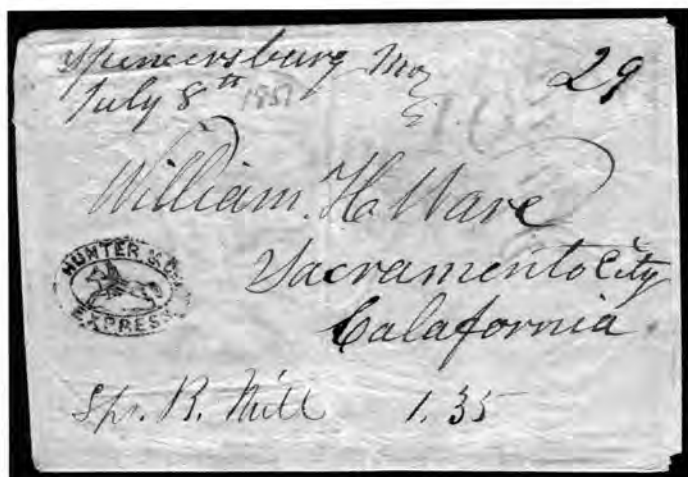 Spencersburg Mo
July 8th 1851
29
William. H. Ware
Sacramento City
Calafornia.
HUNTER & Co's
EXPRESS
Sps. R. Mill 1.35